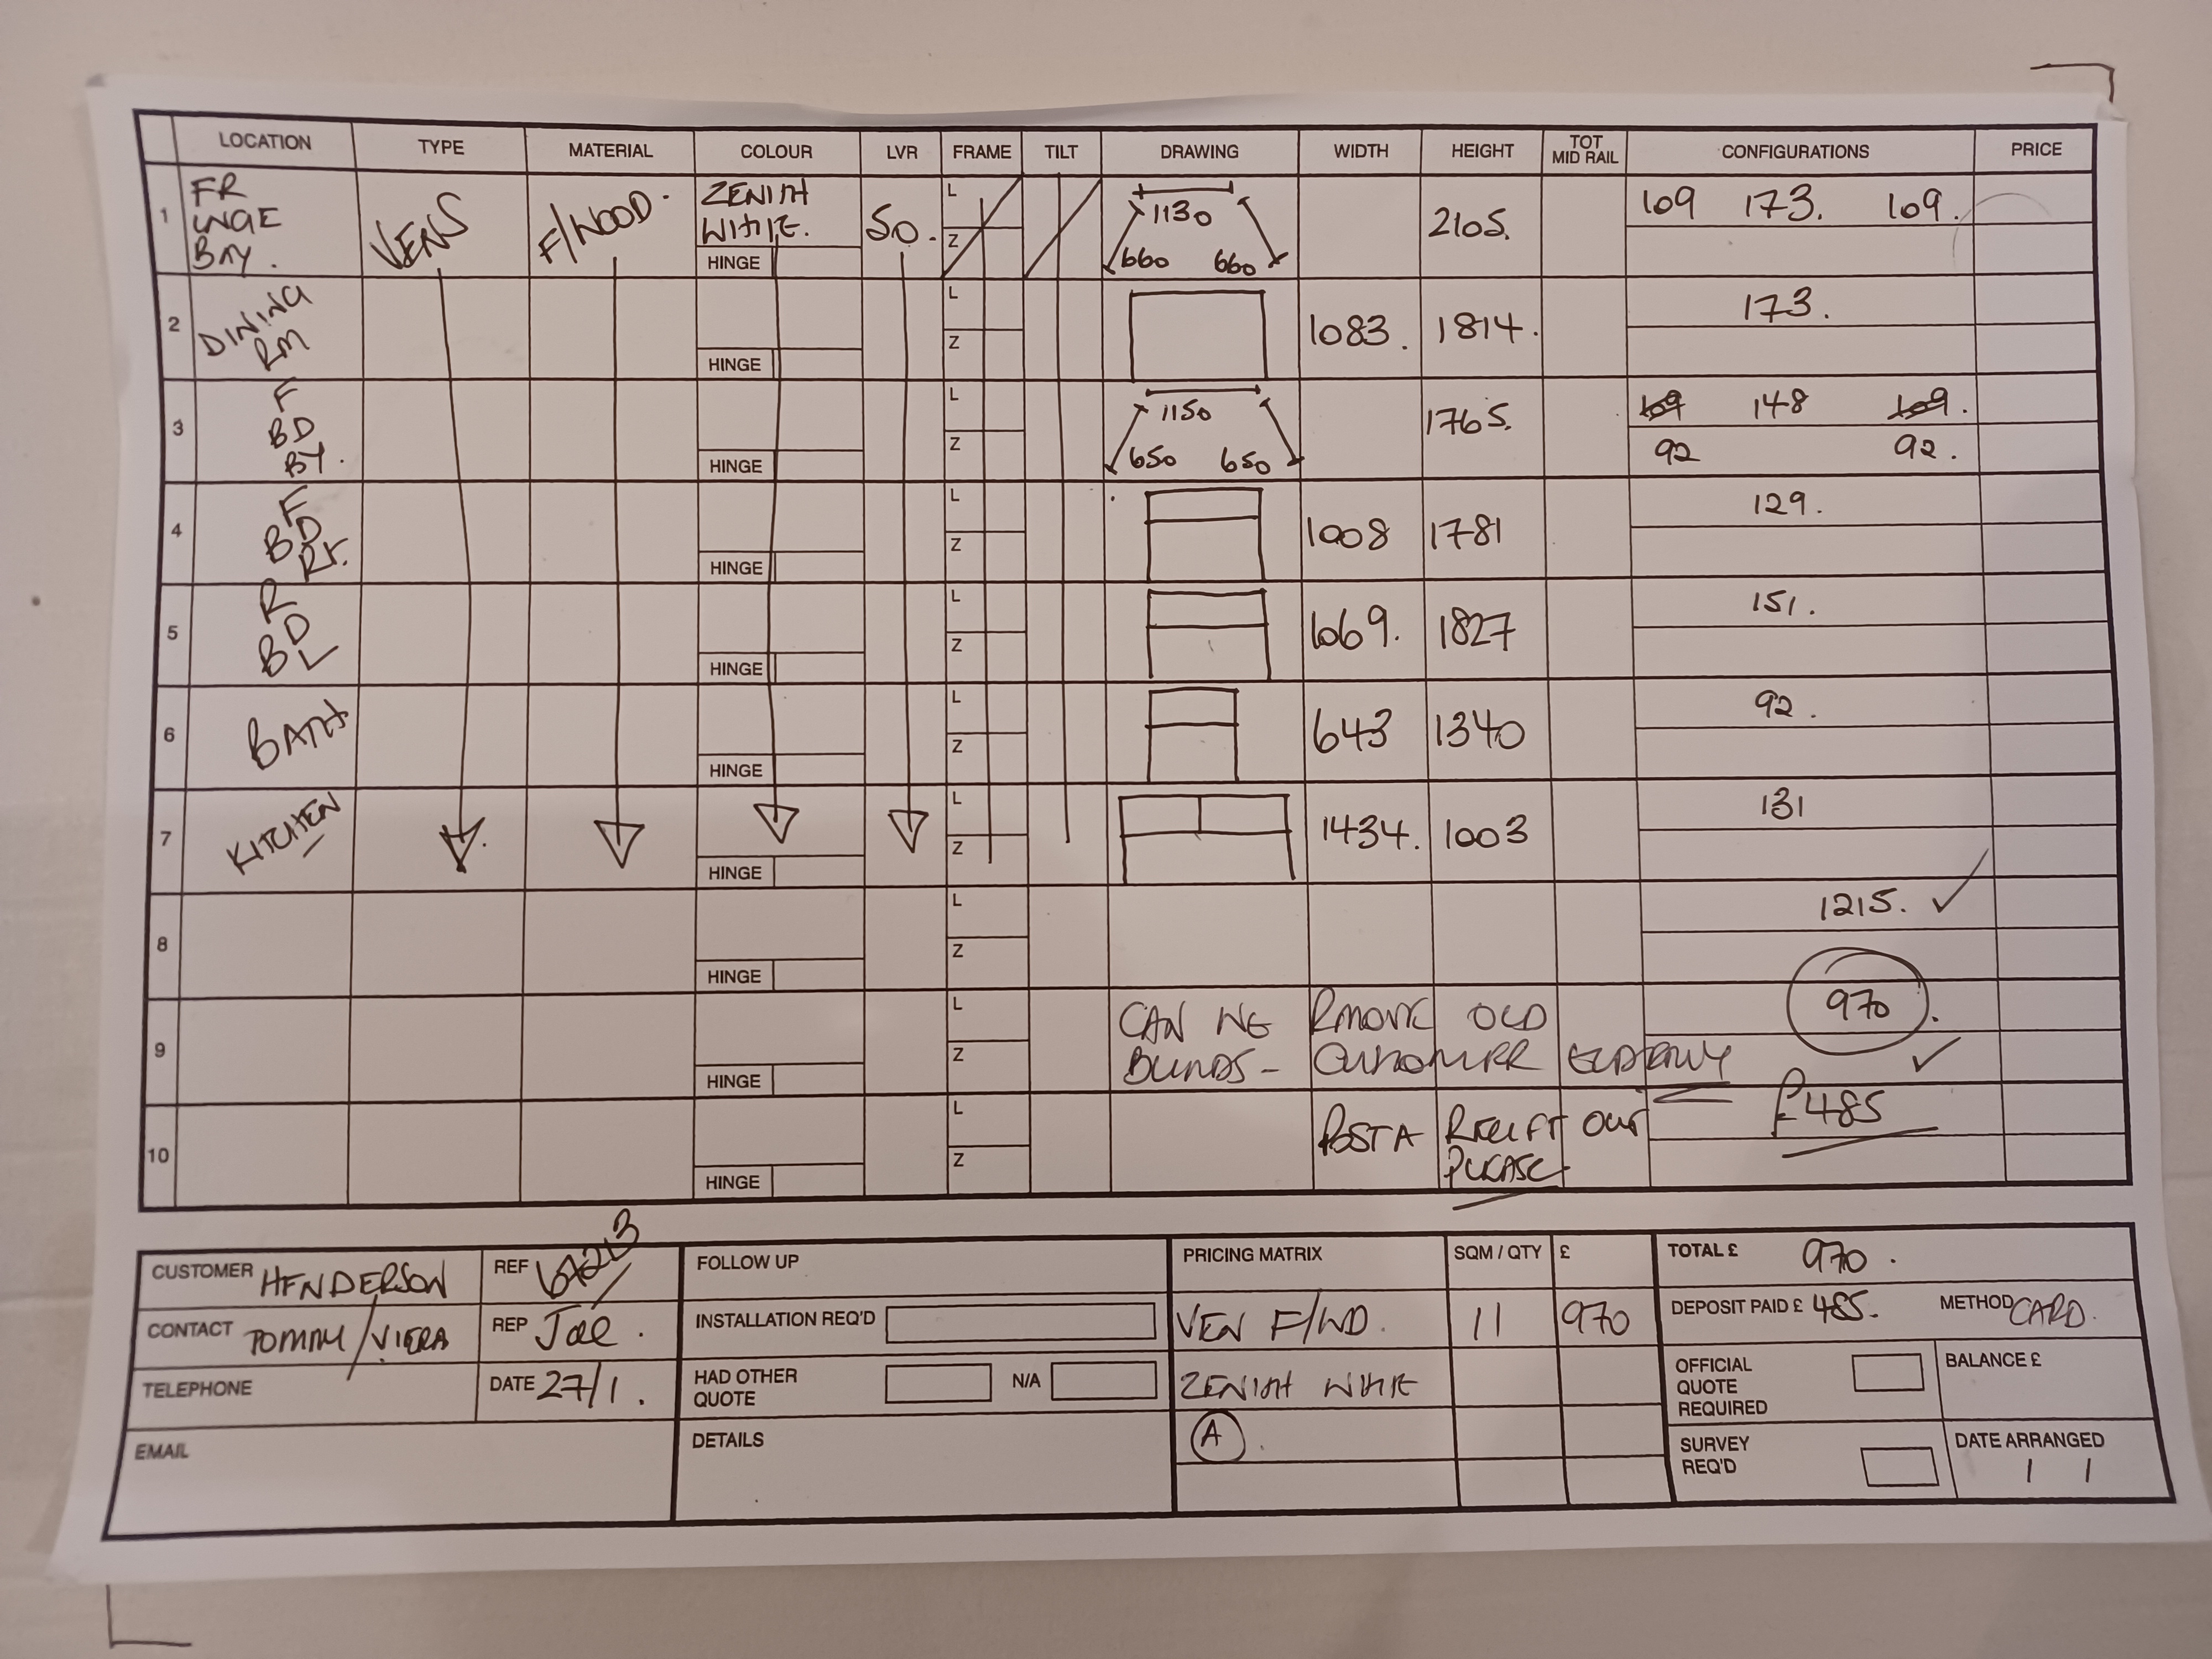 LOCATION TYPE MATERIAL COLOUR LVR FRAME TILT DRAWING WIDTH HEIGHT TOT MID RAIL CONFIGURATIONS PRICE
1 FR LNGE BAY. VENS F/WOOD. ZENITH WHITE. HINGE 50. L Z 1130 660 660 2105. 109 173. 109.
2 DINING RM HINGE L Z 1083. 1814. 173.
3 F BD BY. HINGE L Z 1150 650 650 1765. 109 148 109.
92 92.
4 F BD Rt. HINGE L Z 1008 1781 129.
5 R BD L HINGE L Z 1069. 1827 151.
6 BATH HINGE L Z 643 1340 92.
7 KITCHEN HINGE L Z 1434. 1003 131
8 HINGE L Z 1215. ✓
9 HINGE L Z CAN WE REMOVE OLD 970.
BLINDS - CUSTOMER ELDERLY ✓
10 HINGE L Z POST A RECEIPT OUT £485
PLEASE
CUSTOMER HENDERSON REF
CONTACT TOMMY/VIERA REP Joe.
TELEPHONE DATE 27/1.
EMAIL
FOLLOW UP
INSTALLATION REQ'D
HAD OTHER QUOTE N/A
DETAILS
PRICING MATRIX SQM / QTY £
VEN F/WD. 11 970
ZENITH WHITE
A.
TOTAL £ 970.
DEPOSIT PAID £ 485. METHOD CARD.
OFFICIAL QUOTE REQUIRED BALANCE £
SURVEY REQ'D DATE ARRANGED
/ /